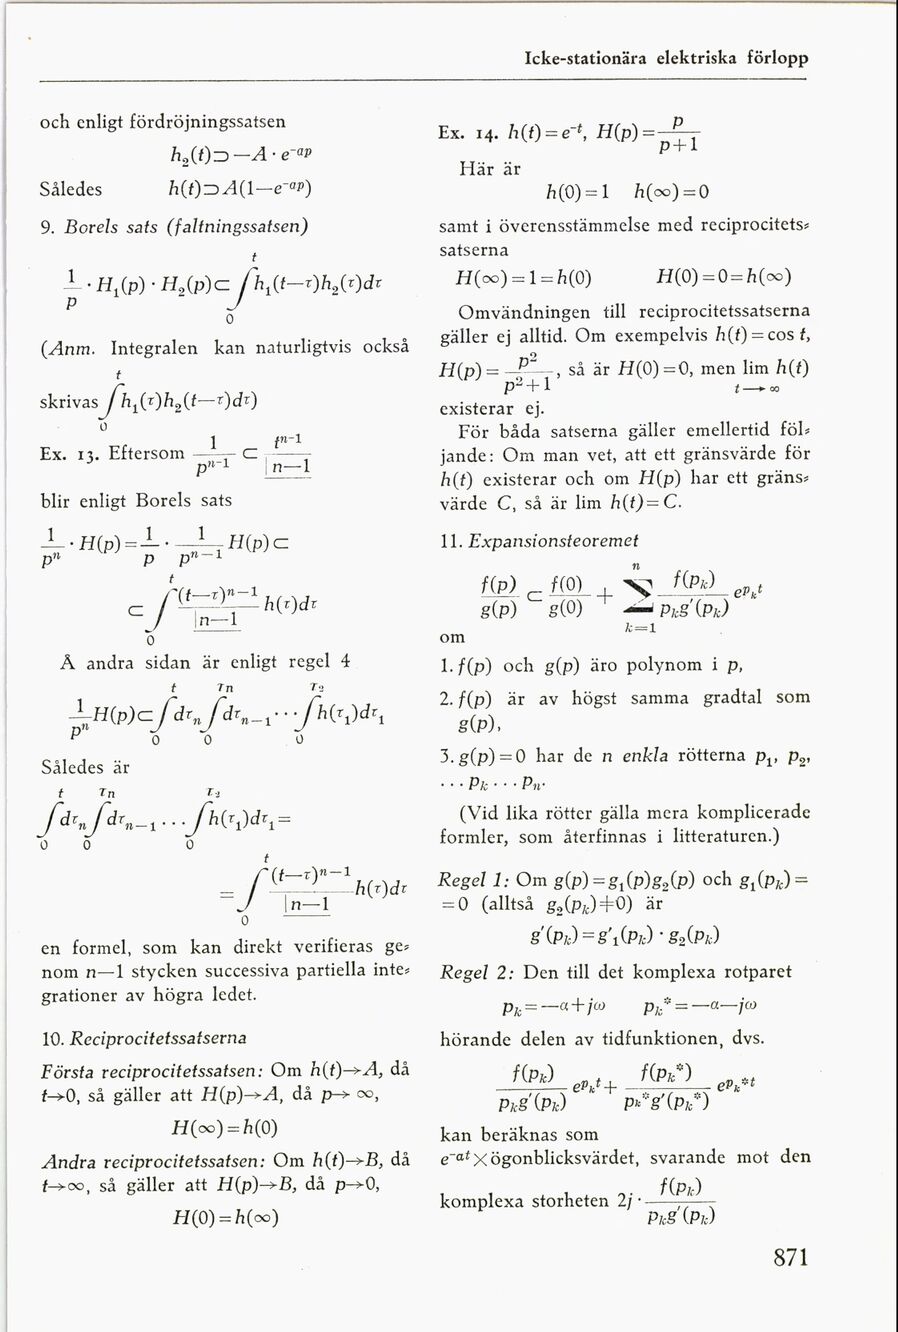 Icke-stationära elektriska förlopp
och enligt fördröjningssatsen
h₂(t)⊐—A · e⁻ᵃᵖ
Således h(t)⊐A(1—e⁻ᵃᵖ)
9. Borels sats (faltningssatsen)
1/p · H₁(p) · H₂(p)⊂ ∫₀ᵗ h₁(t—τ)h₂(τ)dτ
(Anm. Integralen kan naturligtvis också
skrivas ∫₀ᵗ h₁(τ)h₂(t—τ)dτ)
Ex. 13. Eftersom 1/pⁿ⁻¹ ⊂ tⁿ⁻¹/|n—1
blir enligt Borels sats
1/pⁿ · H(p) = 1/p · 1/pⁿ⁻¹ H(p)⊂
⊂ ∫₀ᵗ (t—τ)ⁿ⁻¹/|n—1 h(τ)dτ
Å andra sidan är enligt regel 4
1/pⁿ H(p)⊂ ∫₀ᵗ dτₙ ∫₀^τₙ dτₙ₋₁ · · · ∫₀^τ₂ h(τ₁)dτ₁
Således är
∫₀ᵗ dτₙ ∫₀^τₙ dτₙ₋₁ . . . ∫₀^τ₂ h(τ₁)dτ₁ =
= ∫₀ᵗ (t—τ)ⁿ⁻¹/|n—1 h(τ)dτ
en formel, som kan direkt verifieras ge-
nom n—1 stycken successiva partiella inte-
grationer av högra ledet.
10. Reciprocitetssatserna
Första reciprocitetssatsen: Om h(t)→A, då
t→0, så gäller att H(p)→A, då p→ ∞,
H(∞) = h(0)
Andra reciprocitetssatsen: Om h(t)→B, då
t→∞, så gäller att H(p)→B, då p→0,
H(0) = h(∞)
Ex. 14. h(t) = e⁻ᵗ, H(p) = p/(p+1)
Här är
h(0) = 1 h(∞) = 0
samt i överensstämmelse med reciprocitets-
satserna
H(∞) = 1 = h(0) H(0) = 0 = h(∞)
Omvändningen till reciprocitetssatserna
gäller ej alltid. Om exempelvis h(t) = cos t,
H(p) = p²/(p²+1), så är H(0) = 0, men lim h(t) t→∞
existerar ej.
För båda satserna gäller emellertid föl-
jande: Om man vet, att ett gränsvärde för
h(t) existerar och om H(p) har ett gräns-
värde C, så är lim h(t) = C.
11. Expansionsteoremet
f(p)/g(p) ⊂ f(0)/g(0) + Σ (k=1 … n) f(pₖ)/(pₖg'(pₖ)) e^pₖt
om
1. f(p) och g(p) äro polynom i p,
2. f(p) är av högst samma gradtal som
g(p),
3. g(p) = 0 har de n enkla rötterna p₁, p₂,
· · · pₖ · · · pₙ.
(Vid lika rötter gälla mera komplicerade
formler, som återfinnas i litteraturen.)
Regel 1: Om g(p) = g₁(p)g₂(p) och g₁(pₖ) =
= 0 (alltså g₂(pₖ) ≠ 0) är
g'(pₖ) = g'₁(pₖ) · g₂(pₖ)
Regel 2: Den till det komplexa rotparet
pₖ = —α + jω pₖ* = —α—jω
hörande delen av tidfunktionen, dvs.
f(pₖ)/(pₖg'(pₖ)) e^pₖt + f(pₖ*)/(pₖ*g'(pₖ*)) e^pₖ*t
kan beräknas som
e⁻ᵅᵗ × ögonblicksvärdet, svarande mot den
komplexa storheten 2j · f(pₖ)/(pₖg'(pₖ))
871